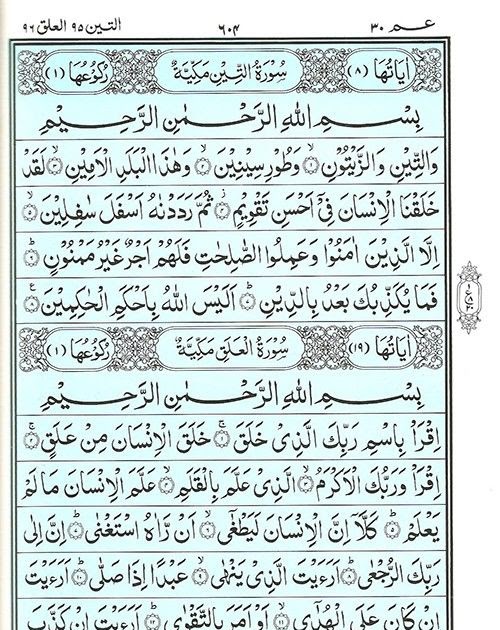 عـم ٣٠ ٦٠٤ التين ٩٥ العلق ٩٦
اٰيَاتُهَا (٨) سُوْرَةُ التِّيْنِ مَكِّيَّةٌ رُكُوْعُهَا (١)
بِسْمِ اللّٰهِ الرَّحْمٰنِ الرَّحِيْمِ
وَالتِّيْنِ وَالزَّيْتُوْنِ ۙ﴿١﴾ وَطُوْرِ سِيْنِيْنَ ۙ﴿٢﴾ وَهٰذَا الْبَلَدِ الْاَمِيْنِ ۙ﴿٣﴾ لَقَدْ
خَلَقْنَا الْاِنْسَانَ فِيْٓ اَحْسَنِ تَقْوِيْمٍ ﴿٤﴾ ثُمَّ رَدَدْنٰهُ اَسْفَلَ سٰفِلِيْنَ ۙ﴿٥﴾
اِلَّا الَّذِيْنَ اٰمَنُوْا وَعَمِلُوا الصّٰلِحٰتِ فَلَهُمْ اَجْرٌ غَيْرُ مَمْنُوْنٍ ؕ﴿٦﴾
فَمَا يُكَذِّبُكَ بَعْدُ بِالدِّيْنِ ؕ﴿٧﴾ اَلَيْسَ اللّٰهُ بِاَحْكَمِ الْحٰكِمِيْنَ ﴿٨﴾ ع
اٰيَاتُهَا (١٩) سُوْرَةُ الْعَلَقِ مَكِّيَّةٌ رُكُوْعُهَا (١)
بِسْمِ اللّٰهِ الرَّحْمٰنِ الرَّحِيْمِ
اِقْرَاْ بِاسْمِ رَبِّكَ الَّذِيْ خَلَقَ ۚ﴿١﴾ خَلَقَ الْاِنْسَانَ مِنْ عَلَقٍ ۚ﴿٢﴾
اِقْرَاْ وَرَبُّكَ الْاَكْرَمُ ۙ﴿٣﴾ الَّذِيْ عَلَّمَ بِالْقَلَمِ ۙ﴿٤﴾ عَلَّمَ الْاِنْسَانَ مَا لَمْ
يَعْلَمْ ؕ﴿٥﴾ كَلَّآ اِنَّ الْاِنْسَانَ لَيَطْغٰٓى ۙ﴿٦﴾ اَنْ رَّاٰهُ اسْتَغْنٰى ؕ﴿٧﴾ اِنَّ اِلٰى
رَبِّكَ الرُّجْعٰى ؕ﴿٨﴾ اَرَءَيْتَ الَّذِيْ يَنْهٰى ۙ﴿٩﴾ عَبْدًا اِذَا صَلّٰى ؕ﴿١٠﴾ اَرَءَيْتَ
اِنْ كَانَ عَلَى الْهُدٰٓى ۙ﴿١١﴾ اَوْ اَمَرَ بِالتَّقْوٰى ؕ﴿١٢﴾ اَرَءَيْتَ اِنْ كَذَّبَ